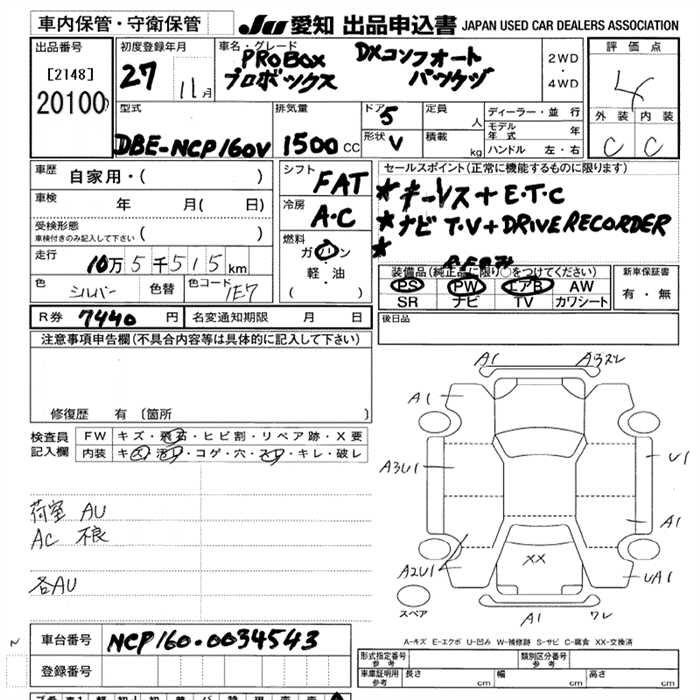 車内保管・守衛保管
JU 愛知 出品申込書 JAPAN USED CAR DEALERS ASSOCIATION
出品番号
[2148]
20100
初度登録年月
27 11月
車名・グレード
PROBOX DXコンフォート
プロボックス パッケヅ
2WD
・
4WD
評価点
4
外装 内装
C C
型式
DBE-NCP160V
排気量
1500 CC
ドア 5
形状 V
定員 人
積載 kg
ディーラー・並行
モデル年式 年
ハンドル 左・右
車歴 自家用・( )
車検 年 月( 日)
受検形態
車検付きのみ記入して下さい ( )
走行 10万5千515km
色 シルバー 色替 色コード 1E7
R券 7440 円 名変通知期限 月 日
シフト FAT
冷房 A・C
燃料
ガソリン
・
軽・油
( )
セールスポイント(正常に機能するものに限ります)
*キーレス+E.T.C
*ナビ T.V+DRIVE RECORDER
*
装備品(純正品に限り○をつけてください)
PS PW エアB AW
SR ナビ TV カワシート
新車保証書
有・無
後日品
注意事項申告欄(不具合内容等は具体的に記入して下さい)
修復歴 有 〔箇所 〕
検査員記入欄
FW キズ・飛石・ヒビ割・リペア跡・X要
内装 キズ・汚レ・コゲ・穴・スレ・キレ・破レ
荷室 AU
AC 不良
各AU
A1 A3スレ
A1
A3U1 U1
A1
A2U1 XX UA1
スペア
A1 ワレ
A-キズ E-エクボ U-凹み W-補修跡 S-サビ C-腐食 XX-交換済
車台番号 NCP160-0034543
登録番号
型式指定番号 参考 類別区分番号 参考
車庫証明用 参考 長さ cm 幅 cm 高さ cm